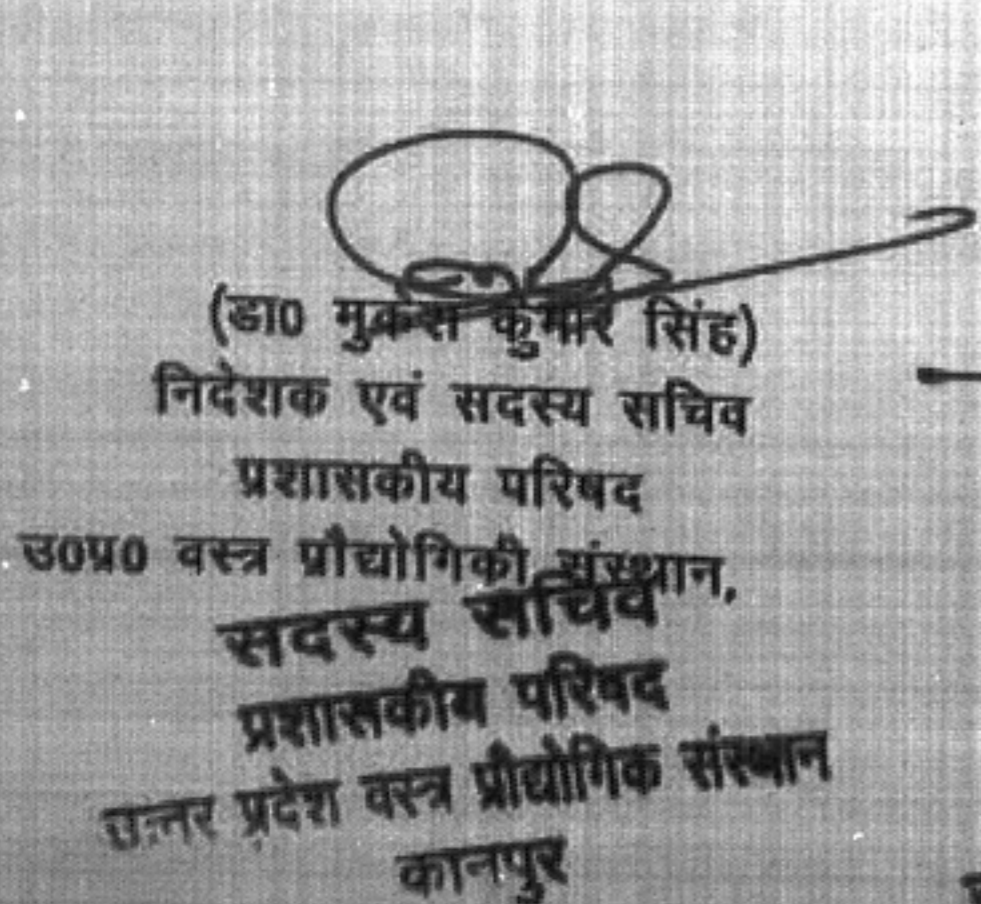 (डा० मुकेश कुमार सिंह)
निदेशक एवं सदस्य सचिव
प्रशासकीय परिषद
उ०प्र० वस्त्र प्रौद्योगिकी संस्थान,
सदस्य सचिव
प्रशासकीय परिषद
उत्तर प्रदेश वस्त्र प्रौद्योगिक संस्थान
कानपुर